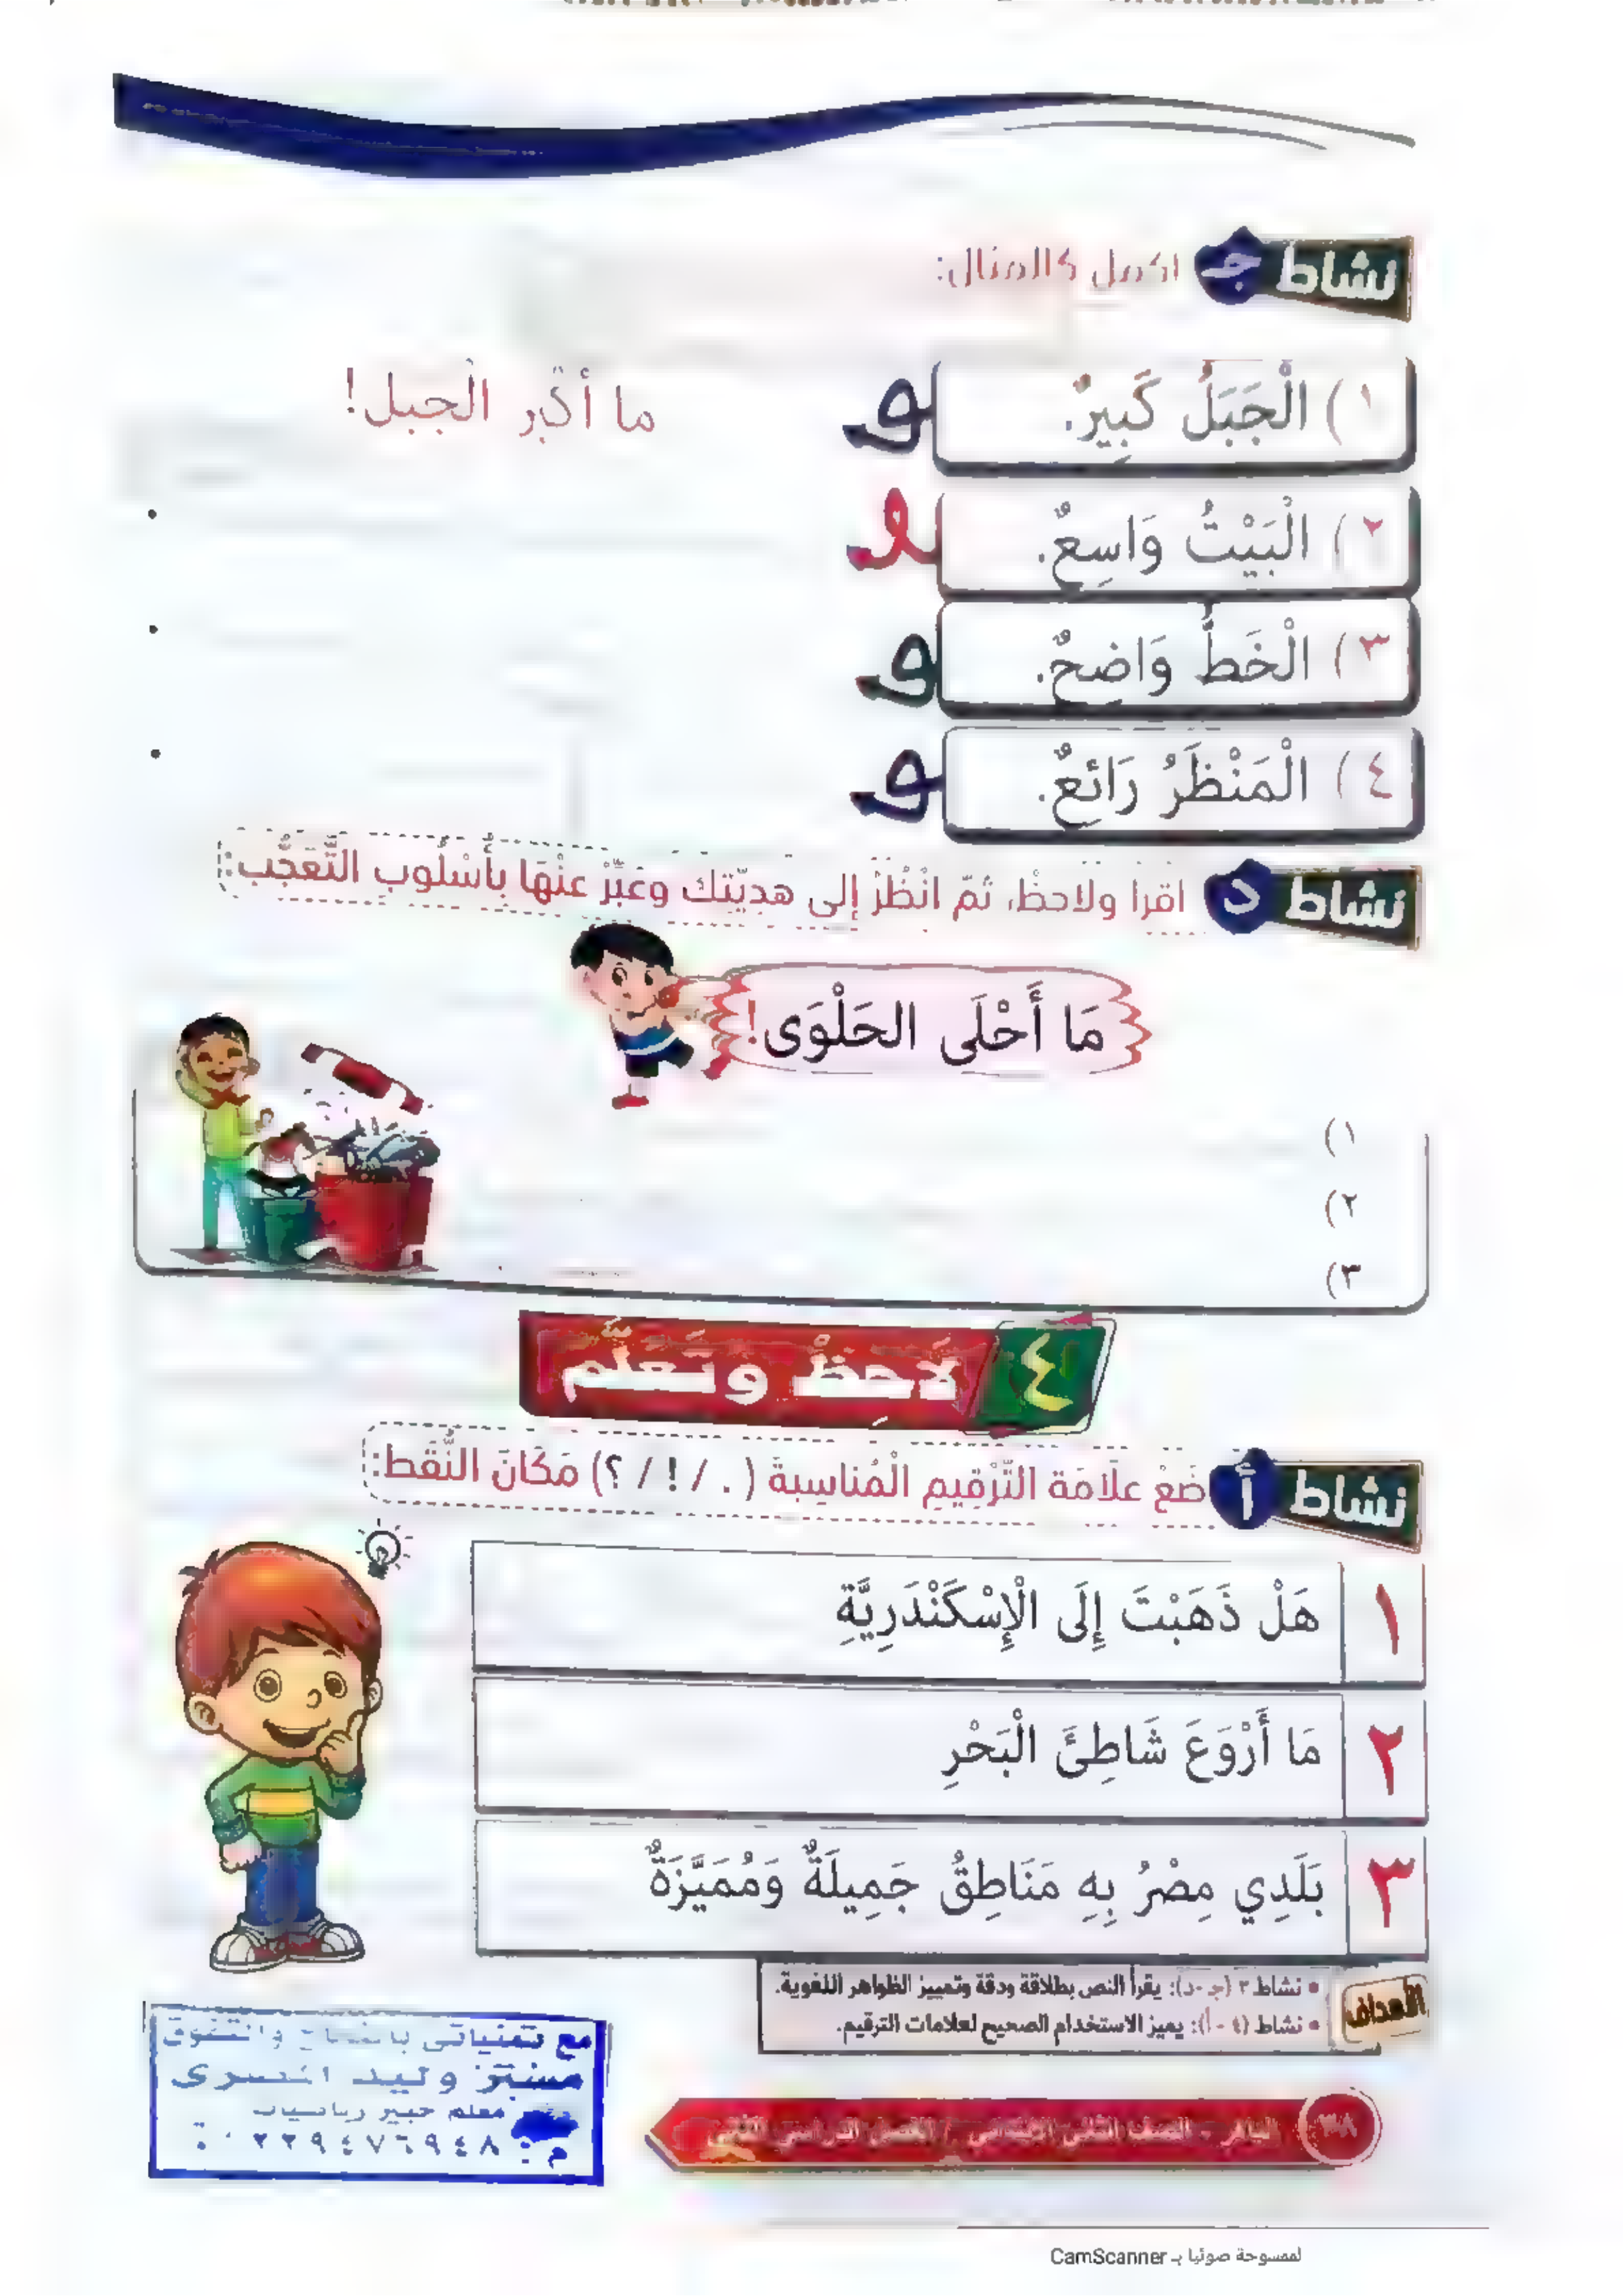 نشاط ج اكمل كالمثال:
١) الْجَبَلُ كَبِيرٌ. ما أكبر الجبل!
٢) الْبَيْتُ وَاسِعٌ.
٣) الْخَطُّ وَاضِحٌ.
٤) الْمَنْظَرُ رَائِعٌ.
نشاط د اقرأ ولاحظْ، ثمّ انْظُرْ إلى هديّتِكَ وعَبِّرْ عنْهَا بِأُسْلُوبِ التَّعَجُّبِ:
مَا أَحْلَى الحَلْوَى!
١)
٢)
٣)
٤ لَاحِظْ وتَعَلَّمْ
نشاط أ ضَعْ علَامَة التَّرْقِيمِ الْمُناسِبةَ ( . / ! / ؟) مَكَانَ النُّقَط:
١ هَلْ ذَهَبْتَ إِلَى الْإِسْكَنْدَرِيَّةِ
٢ مَا أَرْوَعَ شَاطِئَ الْبَحْرِ
٣ بَلَدِي مِصْرُ بِهِ مَنَاطِقُ جَمِيلَةٌ وَمُمَيَّزَةٌ
الأهداف
• نشاط ٣ (جـ -د): يقرأ النص بطلاقة ودقة وتمييز الظواهر اللغوية.
• نشاط (٤ - أ): يميز الاستخدام الصحيح لعلامات الترقيم.
مع تمنياتى بالنجاح والتفوق
مستر وليد
معلم خبير رياضيات
م: ٠٢٢٩٤٧٦٩٤٨
٣٨ - الصف الثاني الابتدائي / الفصل الدراسي الثاني
لممسوحة ضوئيا بـ CamScanner